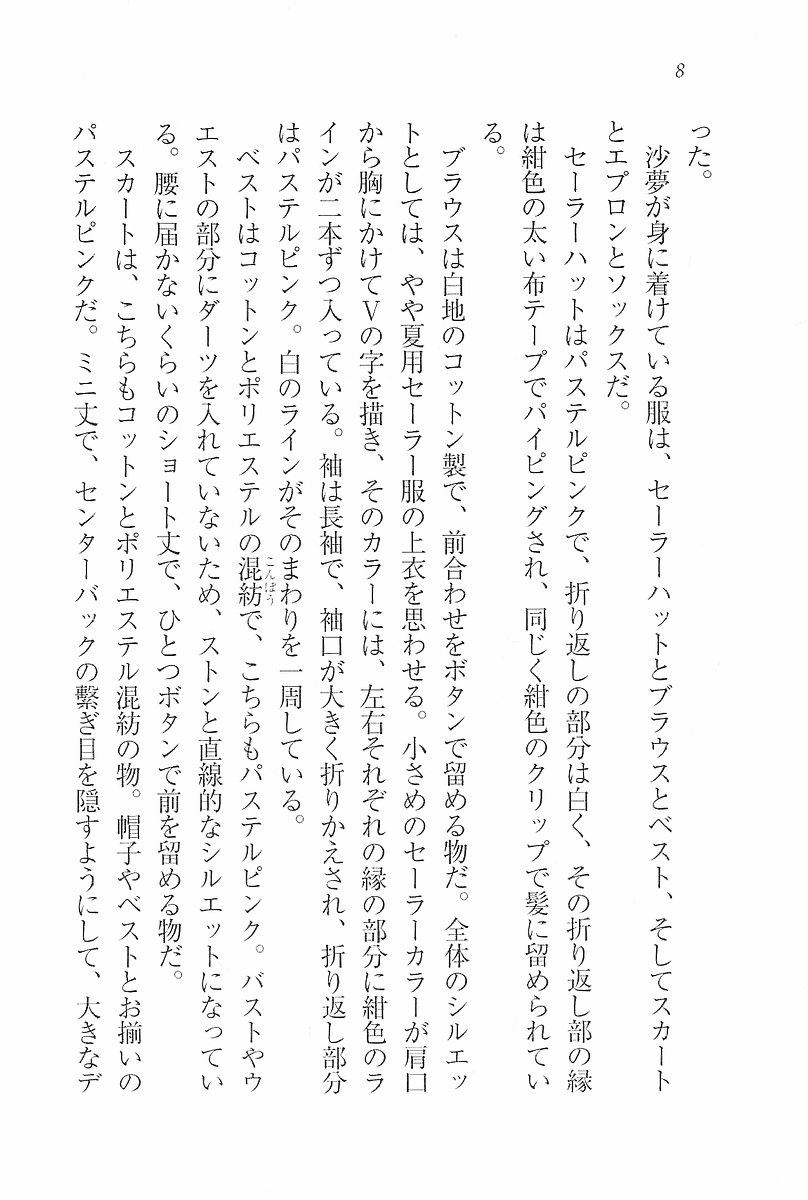 8
った。
沙夢が身に着けている服は、セーラーハットとブラウスとベスト、そしてスカート
とエプロンとソックスだ。
セーラーハットはパステルピンクで、折り返しの部分は白く、その折り返し部の縁
は紺色の太い布テープでパイピングされ、同じく紺色のクリップで髪に留められてい
る。
ブラウスは白地のコットン製で、前合わせをボタンで留める物だ。全体のシルエッ
トとしては、やや夏用セーラー服の上衣を思わせる。小さめのセーラーカラーが肩口
から胸にかけてVの字を描き、そのカラーには、左右それぞれの縁の部分に紺色のラ
インが二本ずつ入っている。袖は長袖で、袖口が大きく折りかえされ、折り返し部分
はパステルピンク。白のラインがそのまわりを一周している。
ベストはコットンとポリエステルの混紡で、こちらもパステルピンク。バストやウ
こんぼう
エストの部分にダーツを入れていないため、ストンと直線的なシルエットになってい
る。腰に届かないくらいのショート丈で、ひとつボタンで前を留める物だ。
スカートは、こちらもコットンとポリエステル混紡の物。帽子やベストとお揃いの
パステルピンクだ。ミニ丈で、センターバックの繋ぎ目を隠すようにして、大きなデ